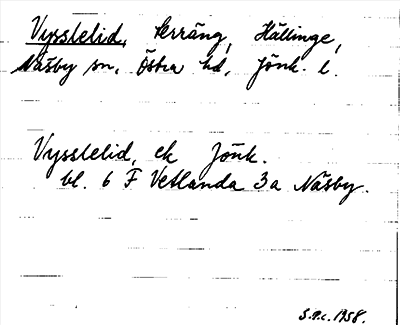 Vysslelid, terräng, Hällinge,
Näsby sn, Östra hd, Jönk. l.
Vysslelid, ek Jönk.
bl. 6 F Vetlanda 3a Näsby.
S.P.c. 1958.